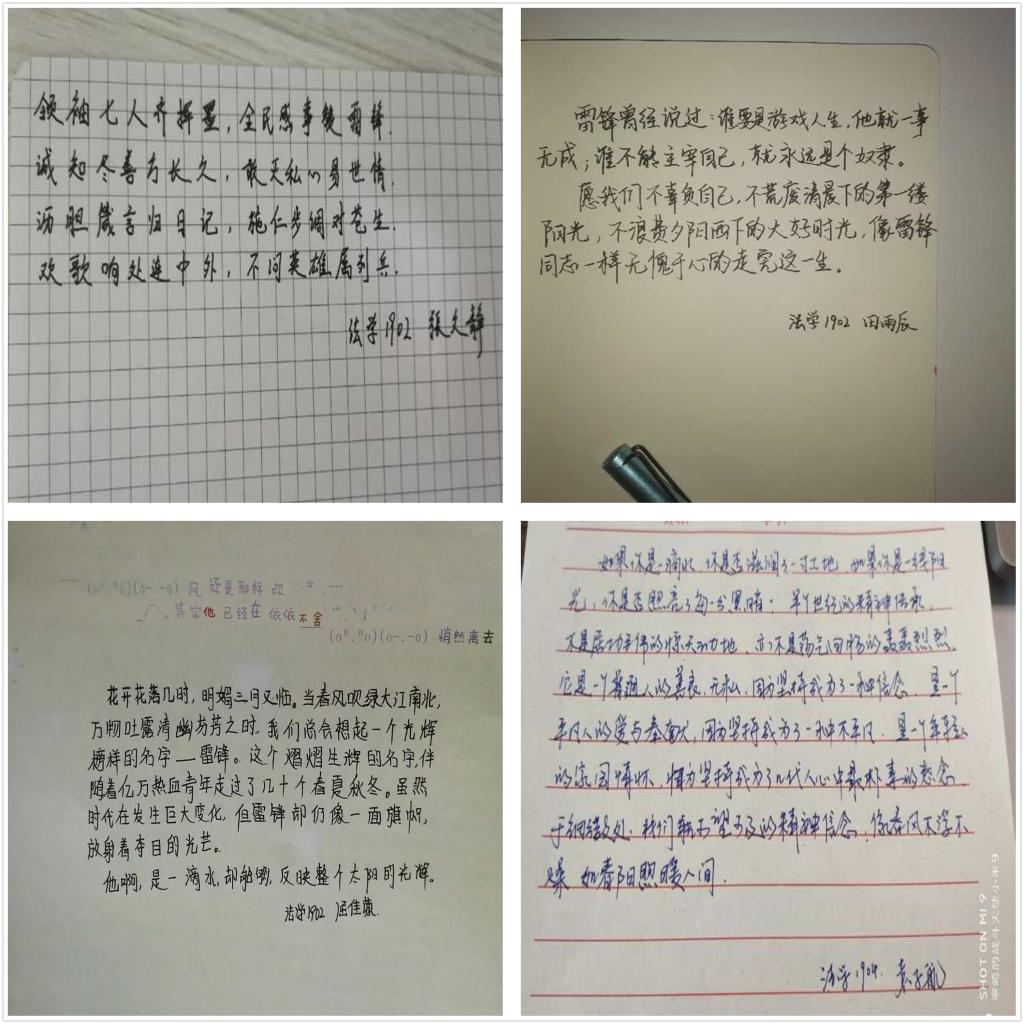 领袖七人齐挥墨，全民感事缓雷锋．
诚知尽善方长久，敢天私心易世情．
沥胆箴言归日记，施仁步调对苍生．
欢歌响处连中外，不问英雄属列兵．
法学1902 张久静
雷锋曾经说过：谁要是游戏人生，他就一事
无成；谁不能主宰自己，就永远是个奴隶。
愿我们不辜负自己，不荒废清晨下的第一缕
阳光，不浪费夕阳西下的大好时光，像雷锋
同志一样无愧于心的走完这一生。
法学1902 田雨辰
(o".."o)(o-.-o) 风 还是那样吹
其实他已经在 依依不舍
(o"."o)(o-.-o) 悄然离去
花开花落几时，明媚三月又临。当春风吹绿大江南北，
万物吐露清幽与芳之时，我们总会想起一个光辉
榜样的名字——雷锋。这个熠熠生辉的名字，伴
随着亿万热血青年走过了几十个春夏秋冬。虽然
时代在发生巨大变化，但雷锋却仍像一面旗帜，
放射着夺目的光芒。
他啊，是一滴水，却能够，反映整个太阳的光辉。
法学1902 屈佳
如果你是一滴水，你是否滋润了一寸土地 如果你是一线阳
光，你是否照亮了每一分黑暗；半个世纪的精神传承，
不是居功至伟的惊天动地，亦不是荡气回肠的轰轰烈烈
它是一个普通人的善良、无私，因为坚持成为了一种信念，是一个
平凡人的爱与奉献，因为坚持成为了一种不平凡，是一个年轻人
的家国情怀，因为坚持成为了几代人心中最朴素的思念
于细微处，我们 望 及的精神信念，像春风不浮不
躁 如春阳照暖人间．
法学1904． 袁子航
SHOT ON MI 9